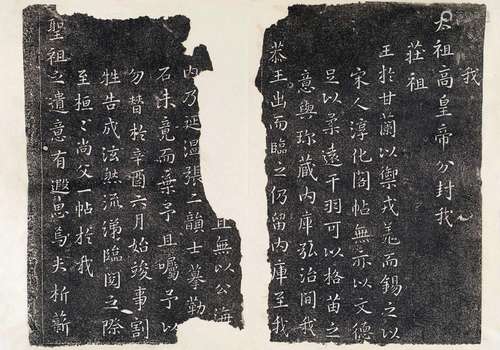 我
太祖高皇帝分封我
莊祖
王於甘蘭以禦戎羌而錫之以
宋人淳化閣帖無亦以文德
足以柔遠干羽可以格苗之
意與珎蔵内庫弘治間我
恭王出而臨之仍留内庫至我
且無以公海
内乃延溫張二韻士摹勒
石未竟而棄予且囑予以
勿替於辛酉六月始竣事割
牲告成泫然流涕臨閱之際
至桓〻尚父一帖於我
聖祖之遺意有遐思焉夫析薪